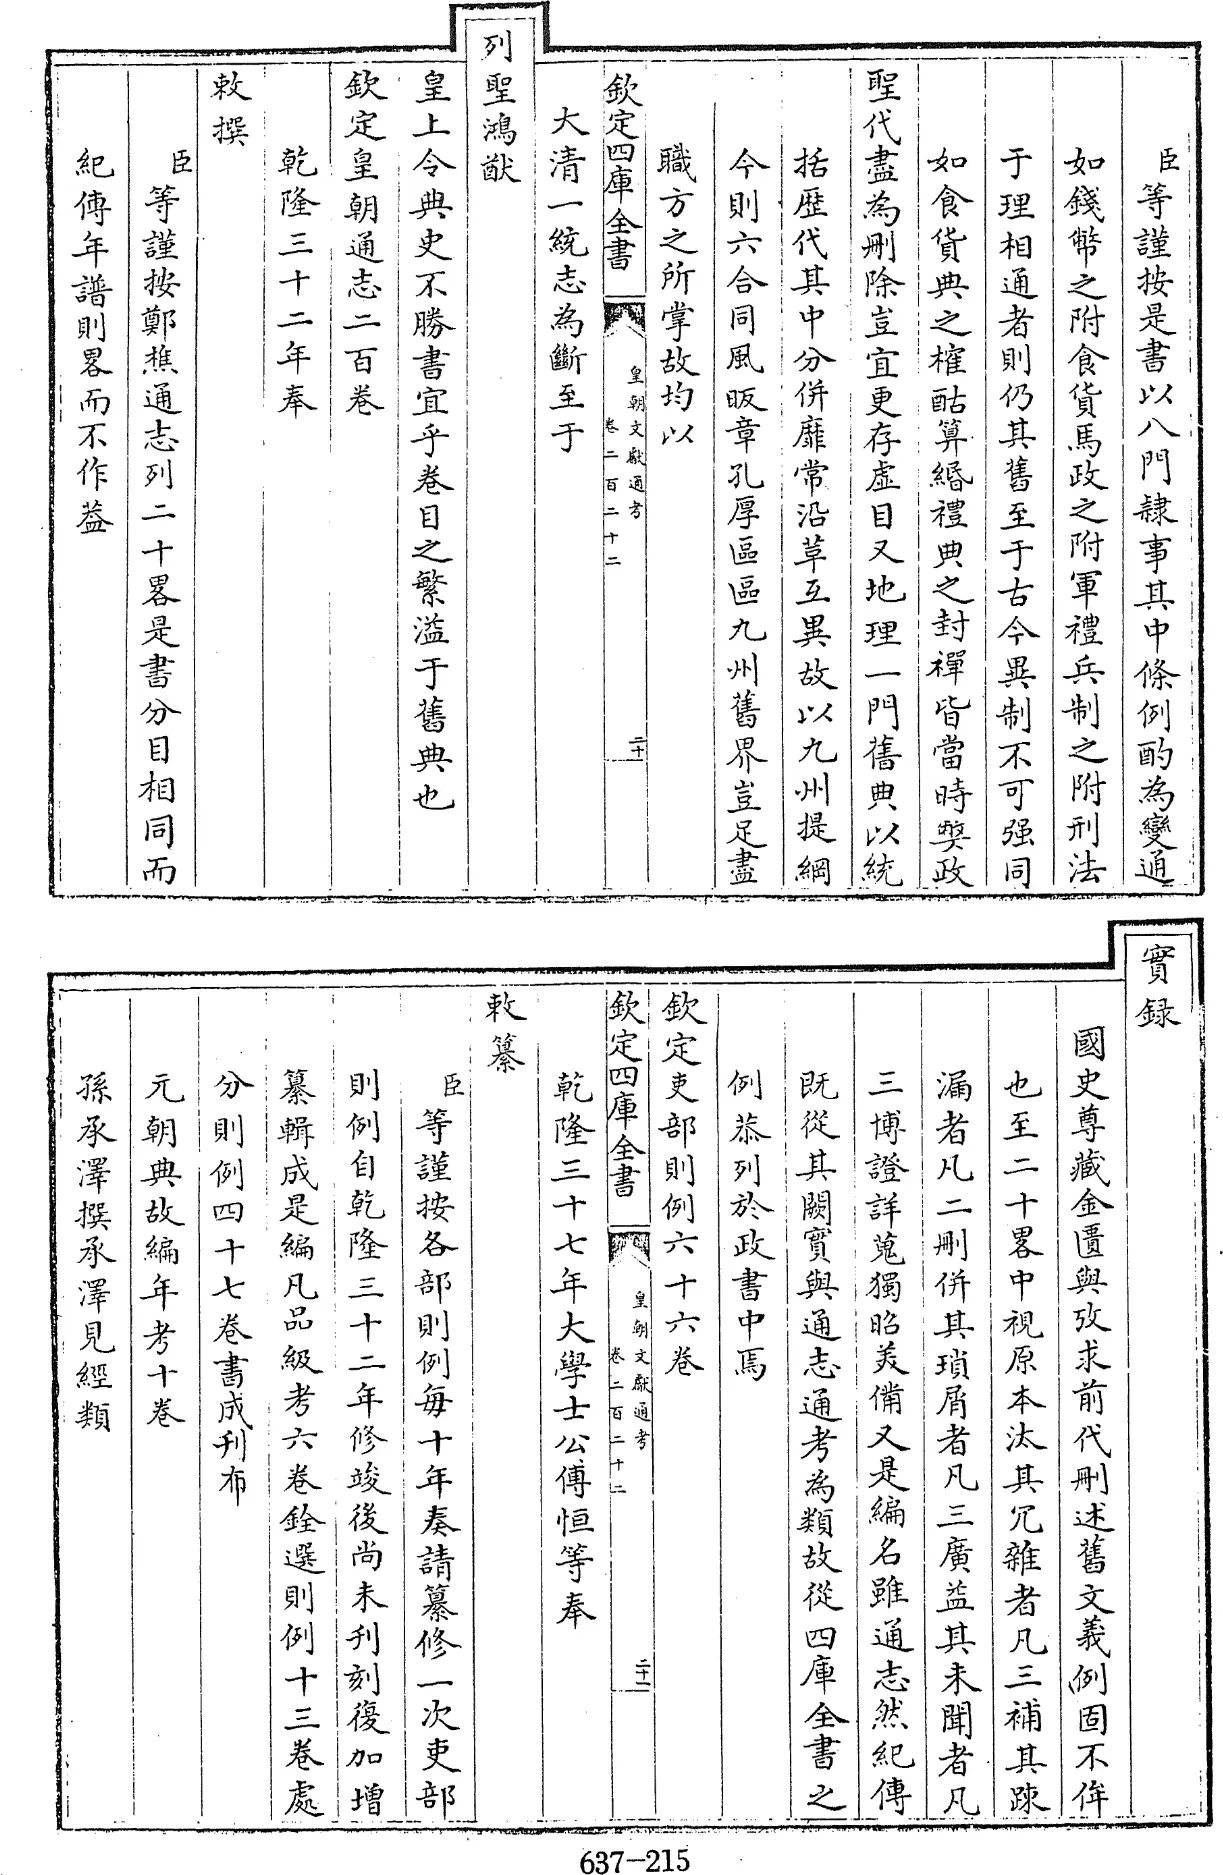 臣等謹按是書以八門隸事其中條例酌為變通
如錢幣之附食貨馬政之附軍禮兵制之附刑法
于理相通者則仍其舊至于古今異制不可强同
如食貨典之榷酤算緡禮典之封禪皆當時弊政
聖代盡為刪除豈宜更存虛目又地理一門舊典以統
括歷代其中分併靡常沿革互異故以九州提綱
今則六合同風昄章孔厚區區九州舊界豈足盡
職方之所掌故均以
欽定四庫全書
皇朝文獻通考
卷二百二十二
二十
大清一統志為斷至于
列聖鴻猷
皇上令典史不勝書宜乎卷目之繁溢于舊典也
欽定皇朝通志二百卷
乾隆三十二年奉
敕撰
臣等謹按鄭樵通志列二十畧是書分目相同而
紀傳年譜則畧而不作蓋
實録
國史尊藏金匱與攷求前代刪述舊文義例固不侔
也至二十畧中視原本汰其冗雜者凡三補其疎
漏者凡二刪併其瑣屑者凡三廣益其未聞者凡
三博證詳蒐獨昭美備又是編名雖通志然紀傳
既從其闕實與通志通考為類故從四庫全書之
例恭列於政書中焉
欽定吏部則例六十六卷
欽定四庫全書
皇朝文獻通考
卷二百二十二
二十一
乾隆三十七年大學士公傅恒等奉
敕纂
臣等謹按各部則例每十年奏請纂修一次吏部
則例自乾隆三十二年修竣後尚未刊刻復加增
纂輯成是編凡品級考六卷銓選則例十三卷處
分則例四十七卷書成刋布
元朝典故編年考十卷
孫承澤撰承澤見經類
637-215